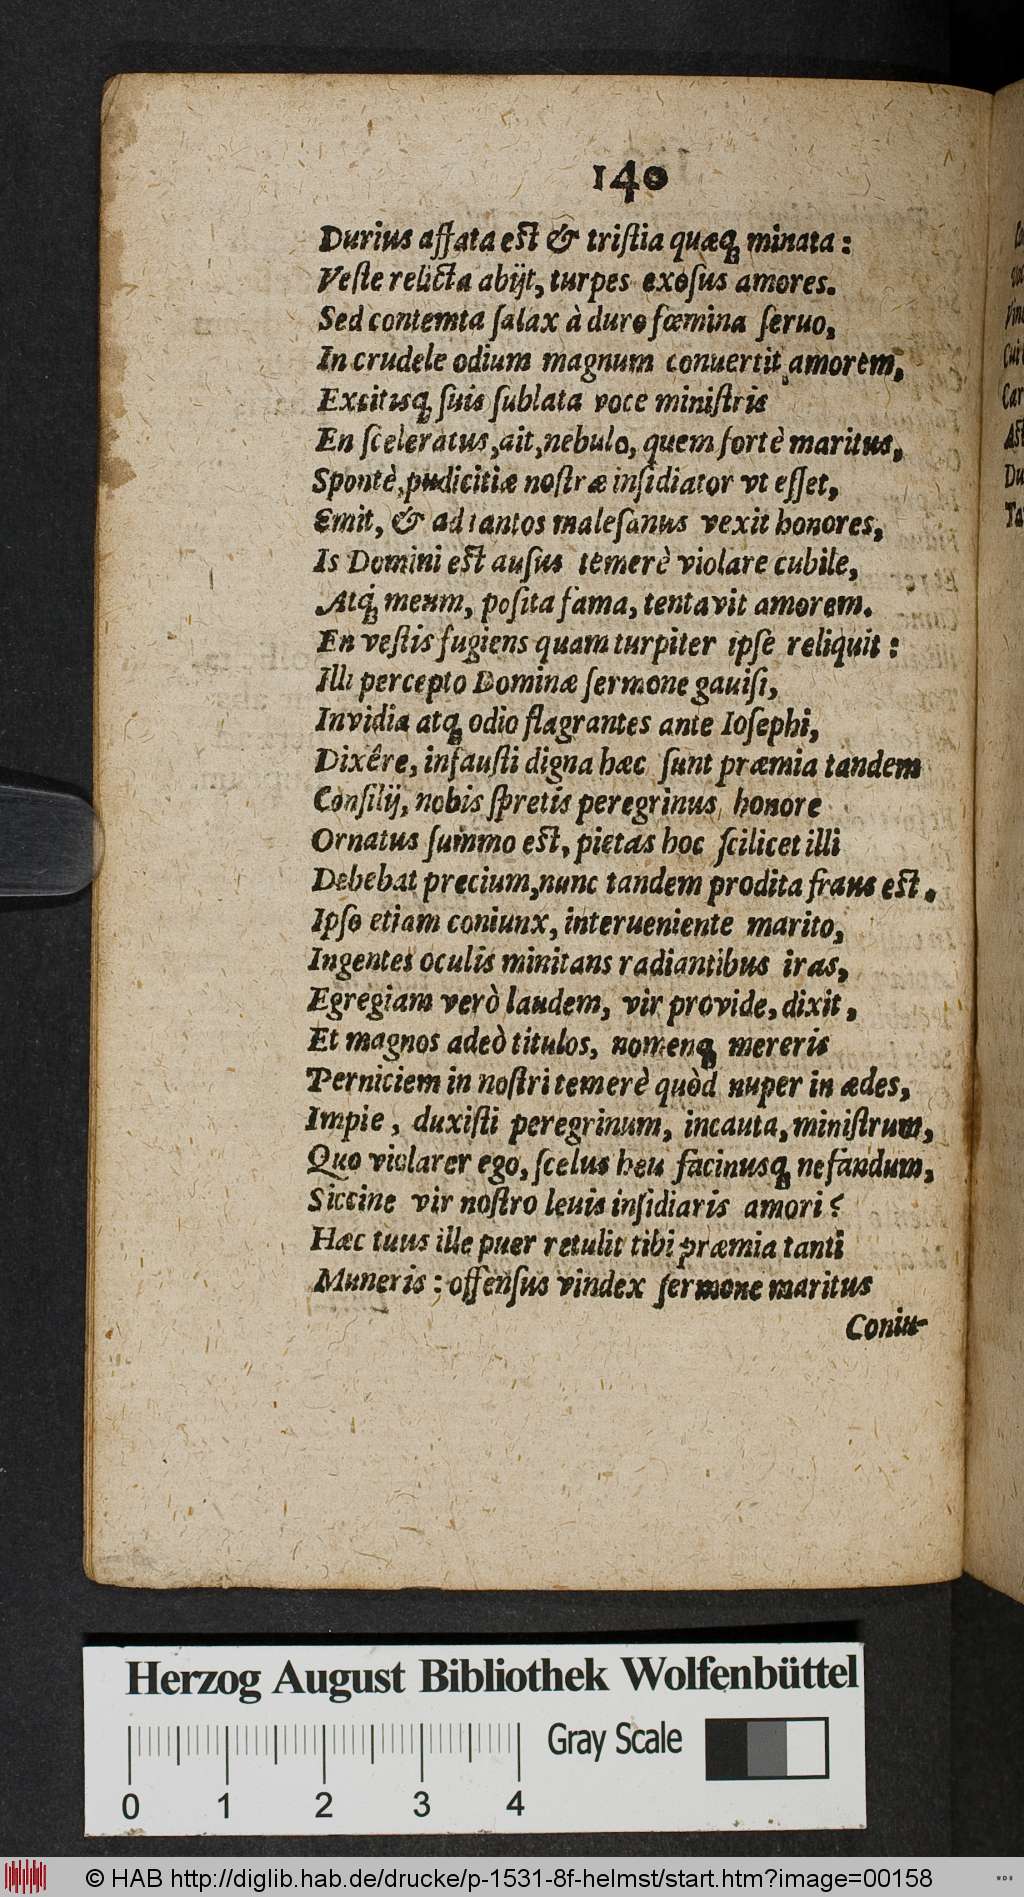 140
Durius affata est & tristia quæq; minata:
Veste relicta abijt, turpes exosus amores.
Sed contemta salax à duro fœmina seruo,
In crudele odium magnum conuertit amorem,
Excitisq; suis sublata voce ministris
En sceleratus, ait, nebulo, quem fortè maritus,
Spontè, pudicitiæ nostræ insidiator vt esset,
Emit, & ad tantos malesanus vexit honores,
Is Domini est ausus temerè violare cubile,
Atq; meum, posita fama, tentavit amorem.
En vestis fugiens quam turpiter ipse reliquit:
Illi percepto Dominæ sermone gauisi,
Invidia atq; odio flagrantes ante Iosephi,
Dixêre, infausti digna hæc sunt præmia tandem
Consilij, nobis spretis peregrinus, honore
Ornatus summo est, pietas hoc scilicet illi
Debebat precium, nunc tandem prodita fraus est.
Ipso etiam coniunx, interueniente marito,
Ingentes oculis minitans radiantibus iras,
Egregiam verò laudem, vir provide, dixit,
Et magnos adeò titulos, nomenq; mereris
Perniciem in nostri temerè quòd nuper in ædes,
Impie, duxisti peregrinum, incauta, ministrum,
Quo violarer ego, scelus heu facinusq; nefandum,
Siccine vir nostro leuis insidiaris amori?
Hæc tuus ille puer retulit tibi præmia tanti
Muneris: offensus vindex sermone maritus
Coniu-
Herzog August Bibliothek Wolfenbüttel
Gray Scale
0 1 2 3 4
© HAB http://diglib.hab.de/drucke/p-1531-8f-helmst/start.htm?image=00158